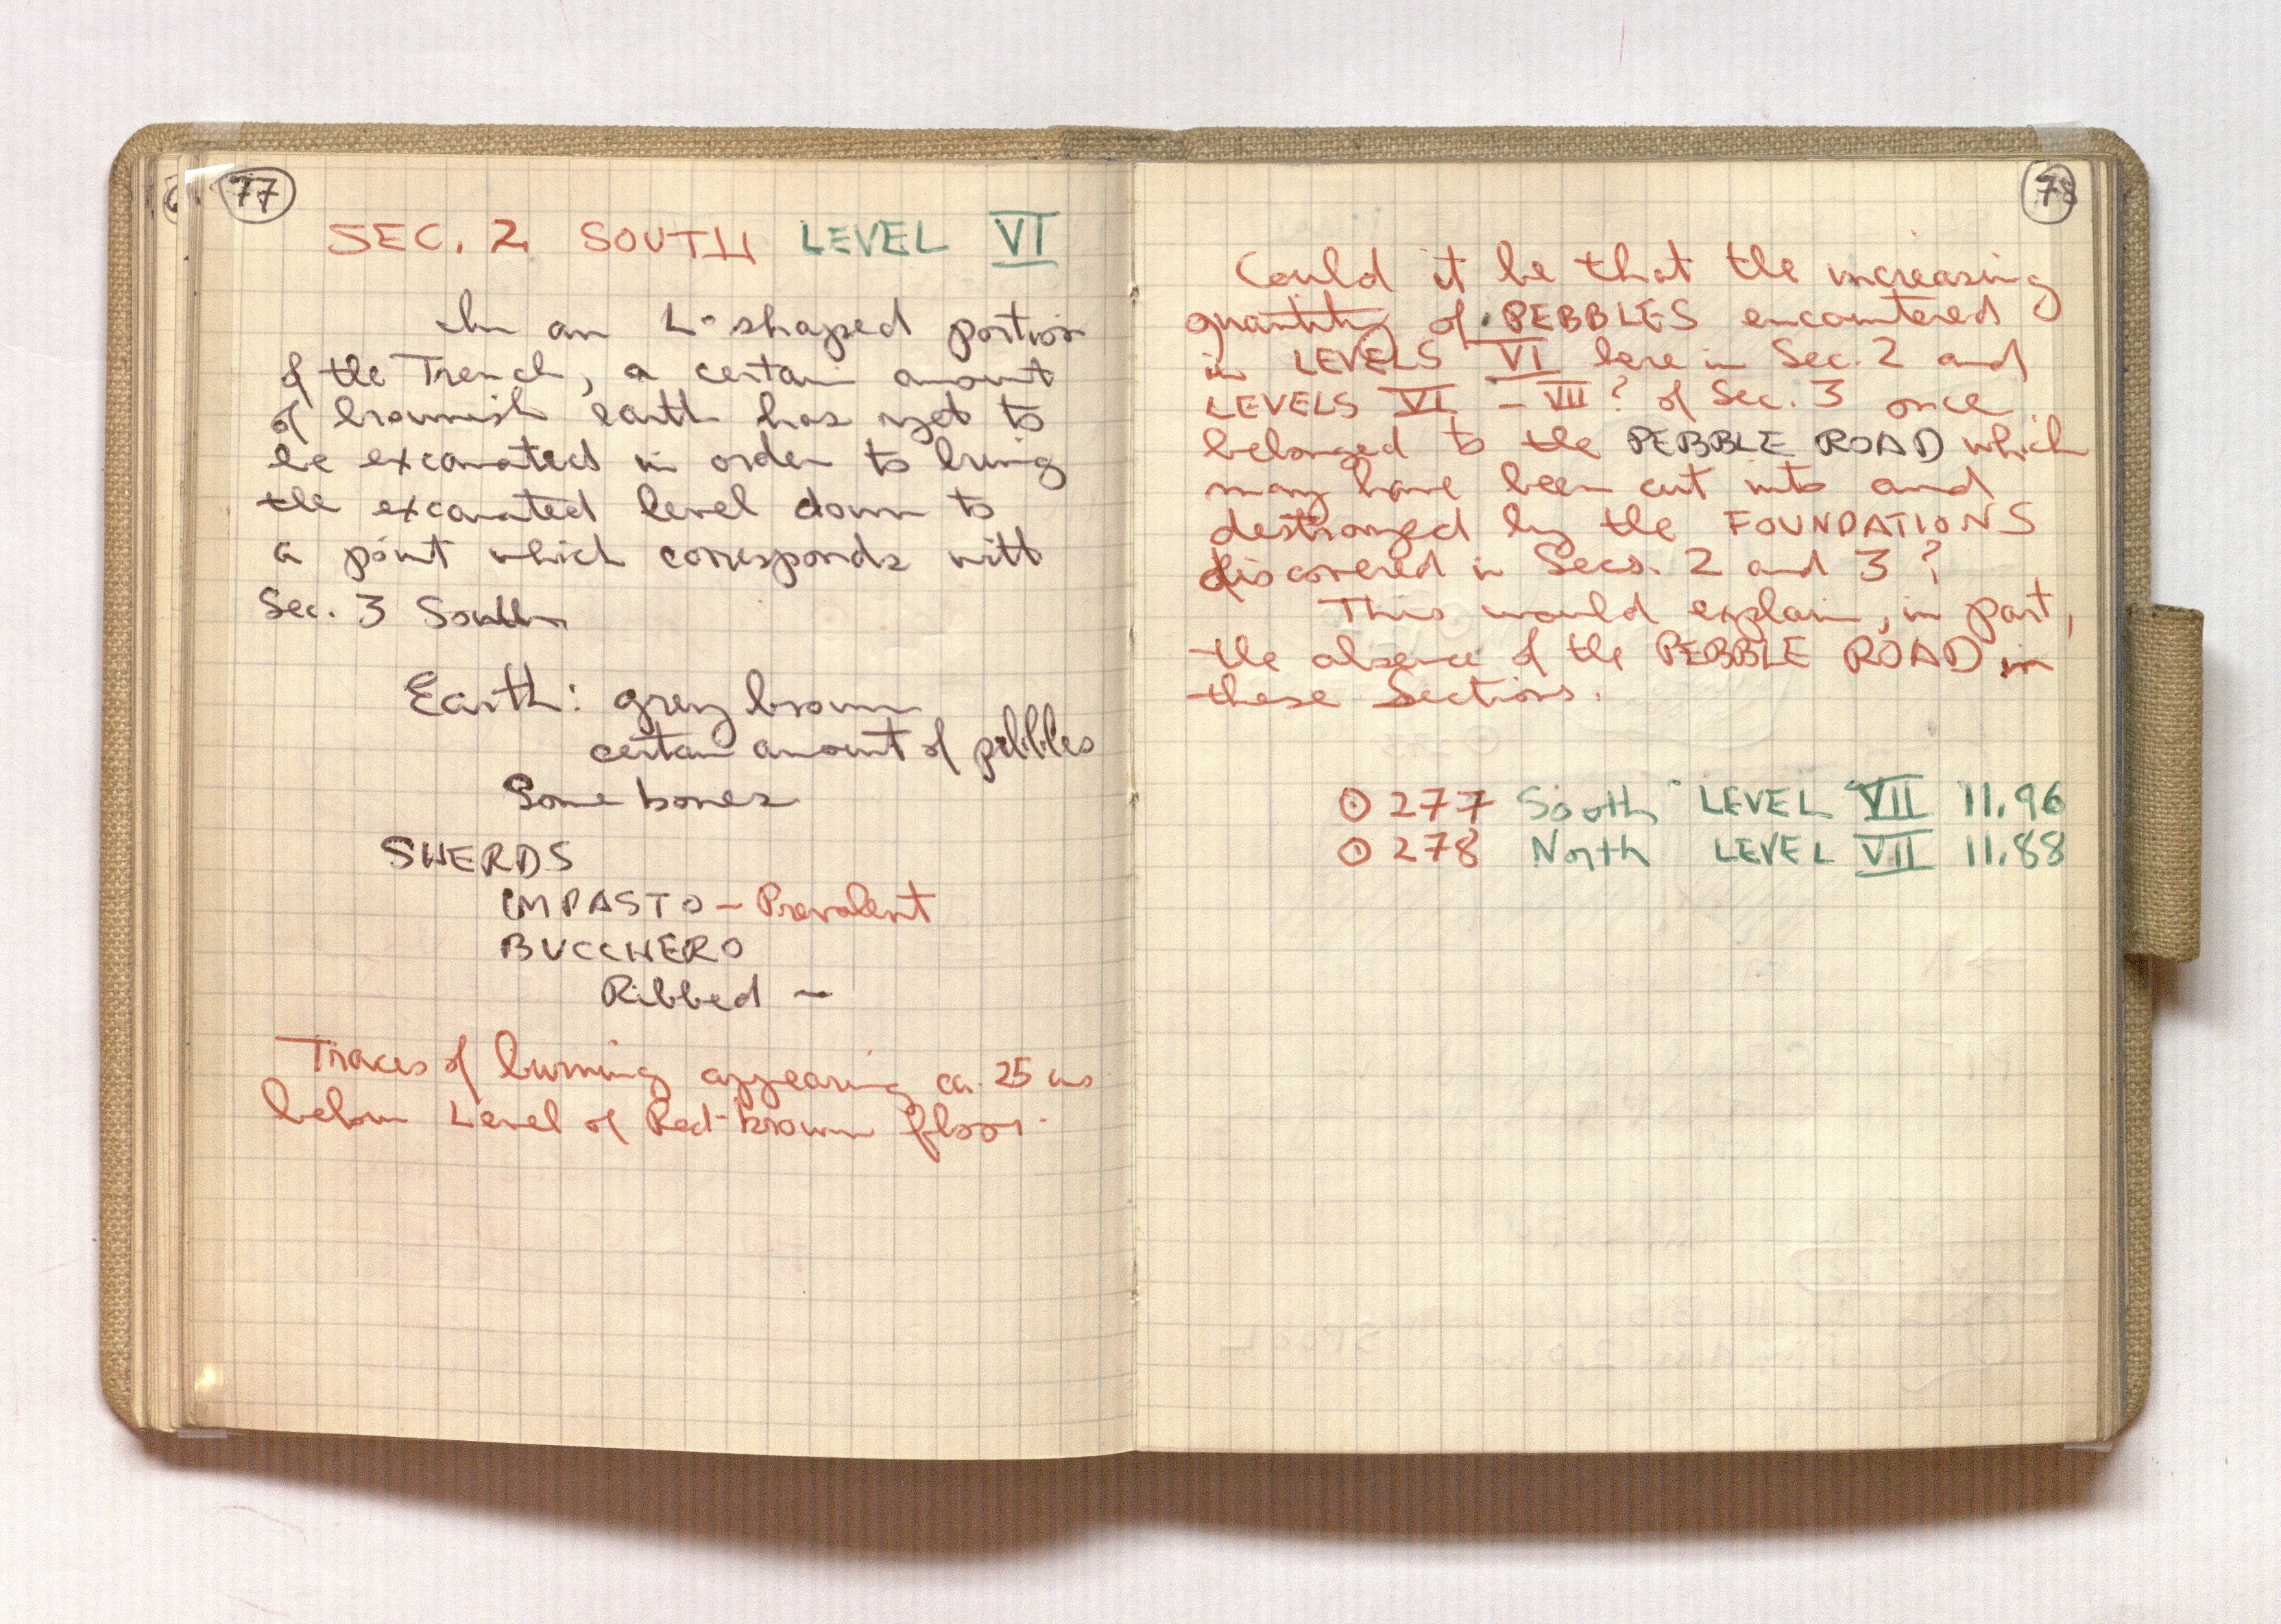 77
SEC. 2 SOUTH LEVEL VI
In an L-shaped portion
of the Trench, a certain amount
of brownish earth has yet to
be excavated in order to bring
the excavated level down to
a point which corresponds with
Sec. 3 South
Earth: grey brown
certain amount of pebbles
Some bones
SHERDS
IMPASTO - Prevalent
BUCCHERO
Ribbed -
Traces of burning appearing ca. 25 cms
below Level of Red-brown floor.
78
Could it be that the increasing
quantity of PEBBLES encountered
in LEVELS VI here in Sec. 2 and
LEVELS VI - VII? of Sec. 3 once
belonged to the PEBBLE ROAD which
may have been cut into and
destroyed by the FOUNDATIONS
discovered in Secs. 2 and 3?
This would explain, in part,
the absence of the PEBBLE ROAD in
these Sections.
⊙ 277 South LEVEL VII 11.96
⊙ 278 North LEVEL VII 11.88